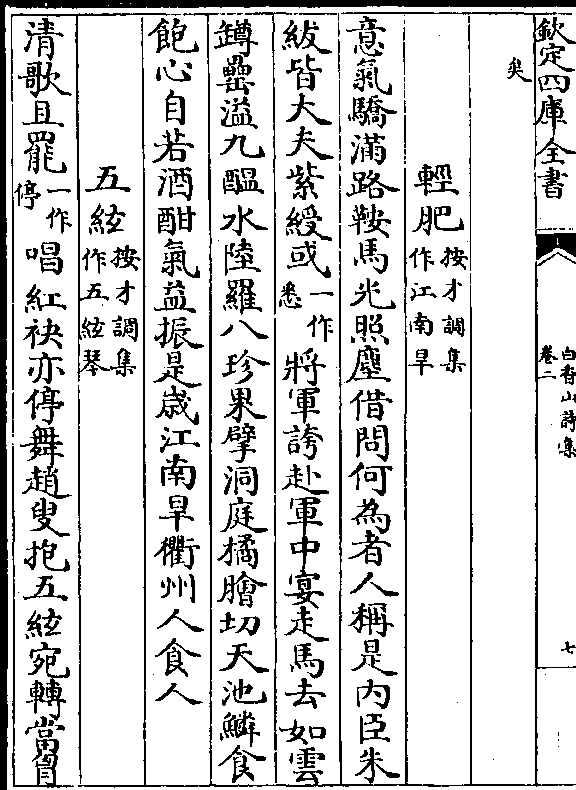 欽定四庫全書
白香山詩集
卷二
七
矣
輕肥按才調集作江南旱
意氣驕滿路鞍馬光照塵借問何為者人稱是内臣朱
紱皆大夫紫綬或一作悉將軍誇赴軍中宴走馬去如雲
罇罍溢九醖水陸羅八珍果擘洞庭橘膾切天池鱗食
飽心自若酒酣氣益振是歳江南旱衢州人食人
五絃按才調集作五絃琴
清歌且罷一作停唱紅袂亦停舞趙叟抱五絃宛轉當胷